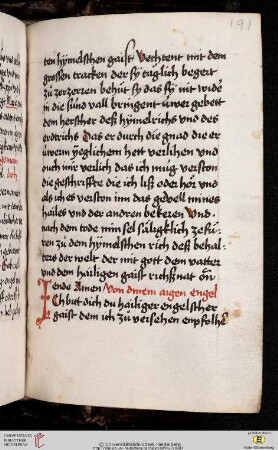 191
ten hymelschen gaist Vechtent mit dem
grossen tracken der sy täglich begert
zů zerzerien behüt sy das sy nit wider
in die sünd vall bringent üwer gebett
dem herscher deß hÿmelrichs vnd des
erdtrichs Das er durch die gnad die er
üwerm yeglichem hett verlihen vnd
ouch mir verlich das ich mug verston
die geschrifften die ich liß oder hör vnd
als ich es verston inn das gevell mines
hailes vnd der andren bekeren Vnd
nach dem tode min sel säligklich zefü
ren zů dem hymelschen rich deß behal
ters der welt der mit gott dem vatter
vnd dem hailigen gaist richßnat on
ende Amen Von dinem aigen engel
Ich bitt dich du hailiger engelscher
gaist dem ich zů versehen enpfolhen
UNIVERSITÄTS-
BIBLIOTHEK
HEIDELBERG
© Universitätsbibliothek Heidelberg